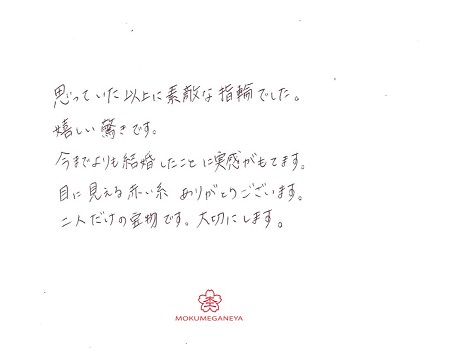 思っていた以上に素敵な指輪でした。
嬉しい驚きです。
今までよりも結婚したことに実感がもてます。
目に見える赤い糸 ありがとうございます。
二人だけの宝物です。大切にします。
MOKUMEGANEYA